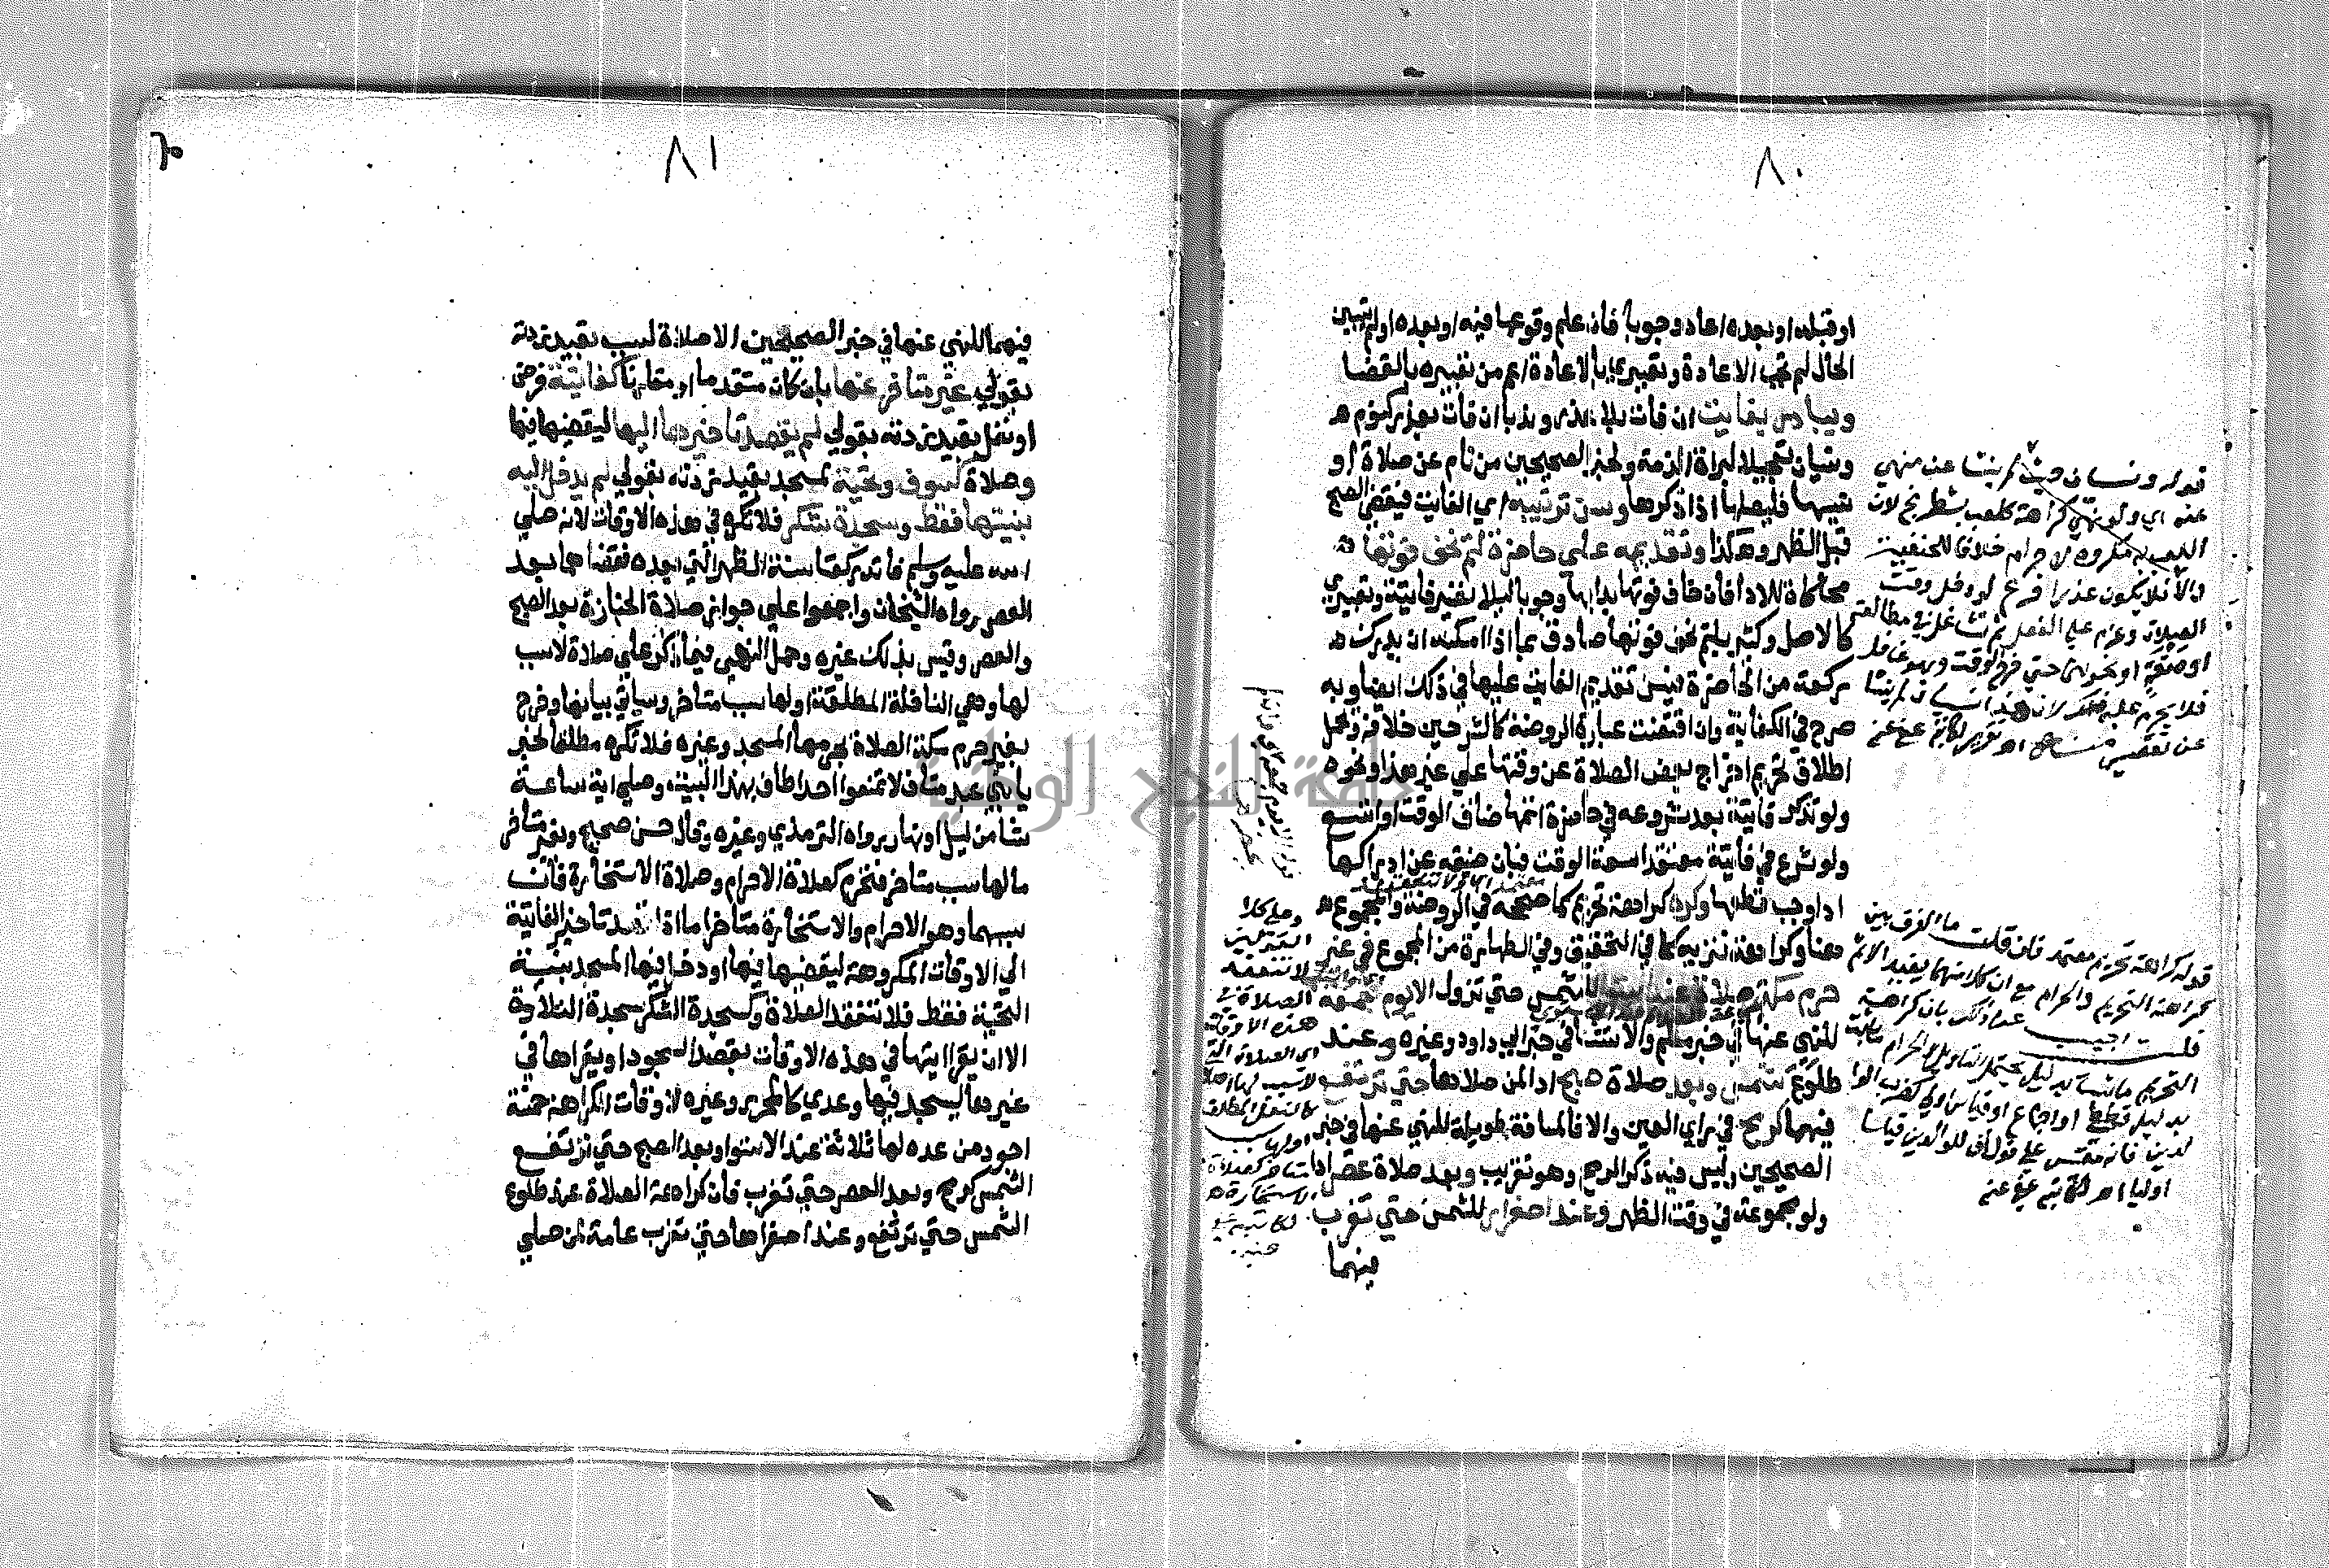 ٨٠
او قبله او بعده اعاد وجوبا فان علم وقوعها فيه او بعده او لم يتبين
الحال لم تجب الاعادة وتعبيري بالاعادة اعم من تعبيره بالقضا
ويبادر بفايت ان فات بلا عذر وندبا ان فات بعذر كنوم
ونسيان تعجيلا لبراة الذمة ولخبر الصحيحين من نام عن صلاة او
نسيها فليصلها اذا ذكرها وسن ترتيبه اي الفايت فيقضي الصبح
قبل الظهر وهكذا وتقديمه علي حاضرة لم يخف فوتها
محاكاة للادا فان خاف فوتها بدا بها وجوبا ليلا تصير فايتة وتعبيري
كالاصل وكثير بلم يخف فوتها صادق بما اذا امكنه ان يدرك
ركعة من الحاضرة فيسن تقديم الفايت عليها في ذلك ايضا وبه
صرح في الكفاية وان اقتضت عبارة الروضة كالشرحين خلافه ويحمل
اطلاق تحريم اخراج بعض الصلاة عن وقتها علي غير هذا ونحوه
ولو تذكر فايتة بعد شروعه في حاضرة اتمها ضاق الوقت او اتسع
ولو شرع في فايتة معتقدا سعة الوقت فبان ضيقه عن ادراكها
ادا وجب قطعها وكره كراهة تحريم كما صححه في الروضة والمجموع
هنا وكراهة تنزيه كما في التحقيق وفي الطهارة من المجموع في غير
حرم مكة صلاة عند استوا الشمس حتي تزول الا يوم جمعة
للنهي عنها في خبر مسلم والاستثنا في خبر ابي داود وغيره وعند
طلوع شمس وبعد صلاة صبح ادا لمن صلاها حتي ترتفع
فيهما كرمح في راي العين والا فالمسافة طويلة للنهي عنها في خبر
الصحيحين وليس فيه ذكر الرمح وهو تقريب وبعد صلاة عصر ادا
ولو مجموعة في وقت الظهر وعند اصفرار الشمس حتي تغرب
فيهما
قوله ونسيان حيث لم ينشا عن منهي
عنه اي ولو نهي كراهة كلعب بشطرنج لان
اللعب به مكروه لا حرام خلافا للحنفية
والا فلا يكون عذرا فرع لو دخل وقت
الصلاة وعزم علي الفعل ثم تشاغل في مطالعة
او صنعة او نحو ذلك حتي خرج الوقت وهو غافل
فلا يحرم عليه ذلك لان هذا نسيان لم ينشا
عن تقصير منه اهـ لكاتبه عفي عنه
قوله كراهة تحريم معتمد فان قلت ما الفرق بين
كراهة التحريم والحرام مع ان كلا منهما يفيد الاثم
قلت اجيب عن ذلك بان كراهة
التحريم ما ثبتا بدليل يحتمل التاويل والحرام ثابتة
بدليل قطعي او اجماع او قياس اولي كضرب الوا
لدين فانه مقيس علي قول اف للوالدين قياسا
اوليا اهـ لكاتبه عفي عنه
وعلي كلا
التقديرين
لا تنعقد
الصلاة في
هذه الاوقات
اي الصلاة التي
لا سبب لها اصلا
كالنفل المطلق
او لها سبب
متاخر كصلاة
الاستخارة
لكاتبه عفي
عنه
٨١
فيهما للنهي عنها في خبر الصحيحين الا صلاة لسبب بقيد زدته
بقولي غير متاخر عنها بان كان متقدما او مقارنا كفايتة فرض
او نفل بقيد زدته بقولي لم يقصد تاخيرها اليها ليقضيها فيها
وصلاة كسوف وتحية لمسجد بقيد زدته بقولي لم يدخل اليه
بنيتها فقط وسجدة شكر فلا تكره في هذه الاوقات لانه صلي
الله عليه وسلم فاته ركعتا سنة الظهر التي بعده فقضاهما بعد
العصر رواه الشيخان واجمعوا علي جواز صلاة الجنازة بعد الصبح
والعصر وقيس بذلك غيره وحمل النهي فيما ذكر علي صلاة لا سبب
لها وهي النافلة المطلقة او لها سبب متاخر وسياتي بيانها وخرج
بغير حرم مكة الصلاة بحرمها المسجد وغيره فلا تكره مطلقا لخبر
يا بني عبد مناف لا تمنعوا احدا طاف بهذا البيت وصلي اية ساعة
شا من ليل او نهار رواه الترمذي وغيره وقال حسن صحيح وبغير متاخر
ما لها سبب متاخر فتحرم كصلاة الاحرام وصلاة الاستخارة فان
سببهما وهو الاحرام والاستخارة متاخر اما اذا قصد تاخير الفايتة
الي الاوقات المكروهة ليقضيها فيها او دخل فيها المسجد بنية
التحية فقط فلا تنعقد الصلاة وكسجدة الشكر سجدة التلاوة
الا ان يقرا ايتها في هذه الاوقات بقصد السجود او يقراها في
غيرها ليسجد فيها وعدي كالمحرر وغيره لاوقات الكراهة خمسة
اجود من عده لها ثلاثة عند الاستوا وبعد الصبح حتي ترتفع
الشمس كرمح وبعد العصر حتي تغرب فان كراهة الصلاة عند طلوع
الشمس حتي ترتفع وعند اصفرارها حتي تغرب عامة لمن صلي
جامعة النجاح الوطنية